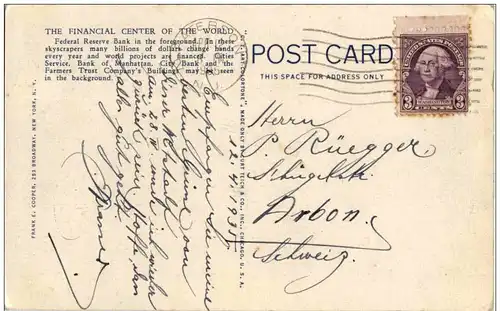 THE FINANCIAL CENTER OF THE WORLD
Federal Reserve Bank in the foreground. In these
skyscrapers many billions of dollars change hands
every year and world projects are financed. Cities
Service, Bank of Manhattan, City Bank and the
Farmers Trust Company's Buildings may be seen
in the background.
POST CARD
THIS SPACE FOR ADDRESS ONLY
UNITED STATES POSTAGE
3 3
CENTS
FRANK E. COOPER, 283 BROADWAY, NEW YORK, N. Y.
MADE ONLY BY CURT TEICH & CO., INC., CHICAGO, U. S. A.
Empfangen Sie meine
besten Grüsse von
wieder
alles gut geht
Herrn
P. Rüegger
Arbon
Schweiz.